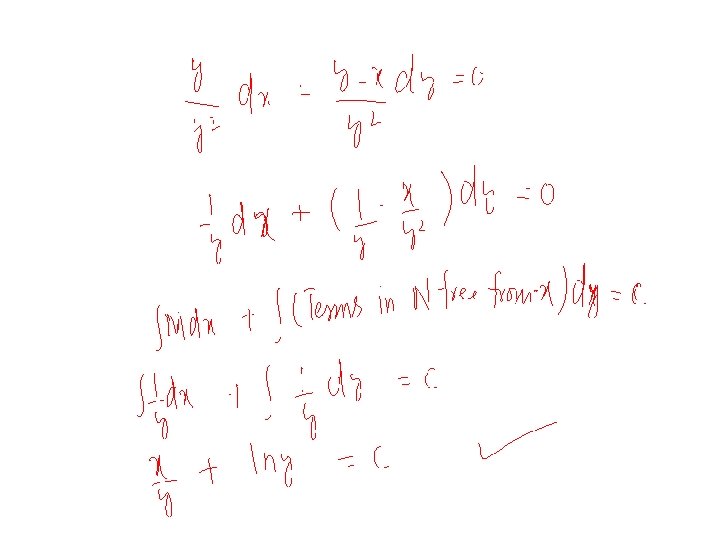 y/y² dx = y-x/y² dy = 0
1/y dx + (1/y - x/y²) dy = 0
∫Mdx + ∫(Terms in N free from x) dy = c.
∫1/y dx + ∫ 1/y dy = c
x/y + ln y = c ✓